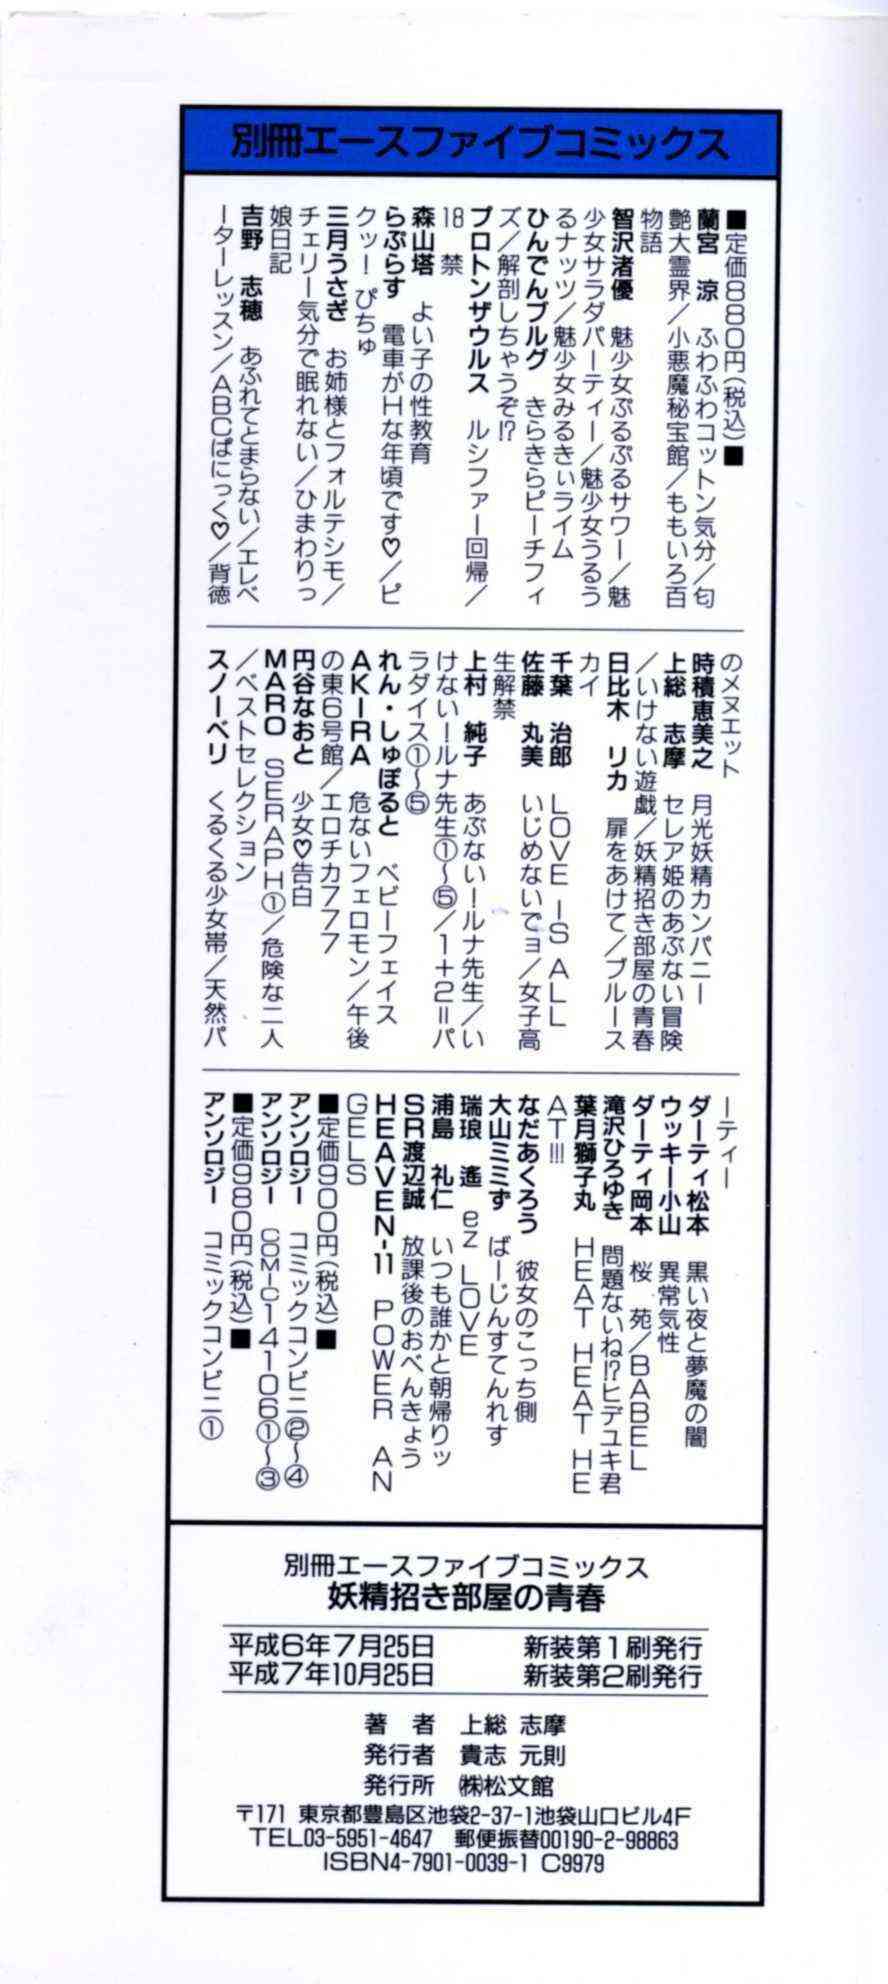 別冊エースファイブコミックス
■定価880円(税込)■
蘭宮　涼　ふわふわコットン気分／匂
艶大霊界／小悪魔秘宝館／ももいろ百
物語
智沢渚優　魅少女ぷるぷるサワー／魅
少女サラダパーティー／魅少女うるう
るナッツ／魅少女みるきぃライム
ひんでんブルグ　きらきらピーチフィ
ズ／解剖しちゃうぞ!?
プロトンザウルス　ルシファー回帰／
18　禁
森山塔　よい子の性教育
らぷらす　電車がHな年頃です♡／ピ
クッ！ぴちゅ
三月うさぎ　お姉様とフォルテシモ／
チェリー気分で眠れない／ひまわりっ
娘日記
吉野　志穂　あふれてとまらない／エレベ
ーターレッスン／ABCぱにっく♡／背徳
のメヌエット
時積恵美之　月光妖精カンパニー
上総　志摩　セレア姫のあぶない冒険
／いけない遊戯／妖精招き部屋の青春
日比木　リカ　扉をあけて／ブルース
カイ
千葉　治郎　LOVE IS ALL
佐藤　丸美　いじめないでョ／女子高
生解禁
上村　純子　あぶない！ルナ先生／い
けない！ルナ先生①～⑤／1＋2＝パ
ラダイス①～⑤
れん・しゅぽると　ベビーフェイス
AKIRA　危ないフェロモン／午後
の東6号館／エロチカ777
円谷なおと　少女♡告白
MARO　SERAPH①／危険な二人
／ベストセレクション
スノーベリ　くるくる少女帯／天然パ
ーティー
ダーティ松本　黒い夜と夢魔の闇
ウッキー小山　異常気性
ダーティ岡本　桜　苑／BABEL
滝沢ひろゆき　問題ないね!?ヒデユキ君
葉月獅子丸　HEAT HEAT HE
AT!!!
なだあくろう　彼女のこっち側
大山ミミず　ばーじんすてんれす
瑞琅　遙　ez LOVE
浦島　礼仁　いつも誰かと朝帰りッ
SR渡辺誠　放課後のおべんきょう
HEAVEN-11　POWER AN
GELS
■定価900円(税込)■
アンソロジー　コミックコンビニ②～④
アンソロジー　COMIC14106①～③
■定価980円(税込)■
アンソロジー　コミックコンビニ①
別冊エースファイブコミックス
妖精招き部屋の青春
平成6年7月25日　新装第1刷発行
平成7年10月25日　新装第2刷発行
著　者　上総 志摩
発行者　貴志 元則
発行所　㈱松文館
〒171 東京都豊島区池袋2-37-1池袋山口ビル4F
TEL03-5951-4647　郵便振替00190-2-98863
ISBN4-7901-0039-1 C9979